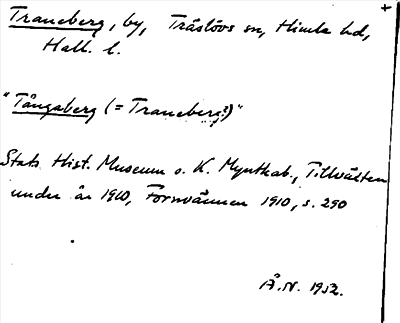 +
Traneberg, by, Träslövs sn, Himle hd,
Hall. l.
"Tångaberg (= Traneberg?)"
Stats Hist. Museum o. K. Myntkab., Tillväxten
under år 1910, Fornvännen 1910, s. 290
Å.N. 1952.